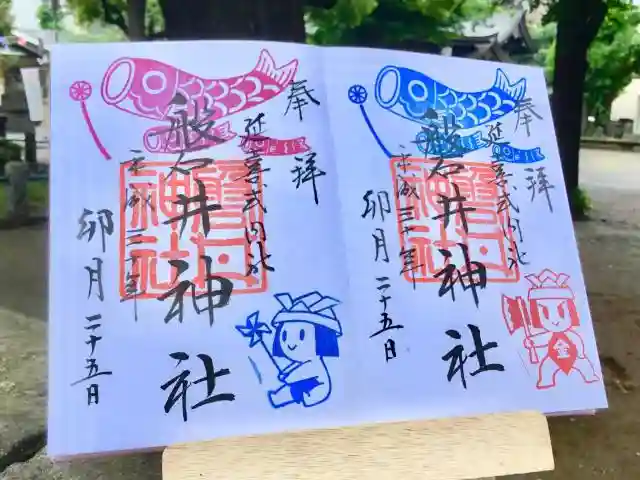 奉拝
延喜式内社
磐井神社
平成三十年
卯月二十五日
磐井神社
奉拝
延喜式内社
磐井神社
平成三十年
卯月二十五日
磐井神社
金